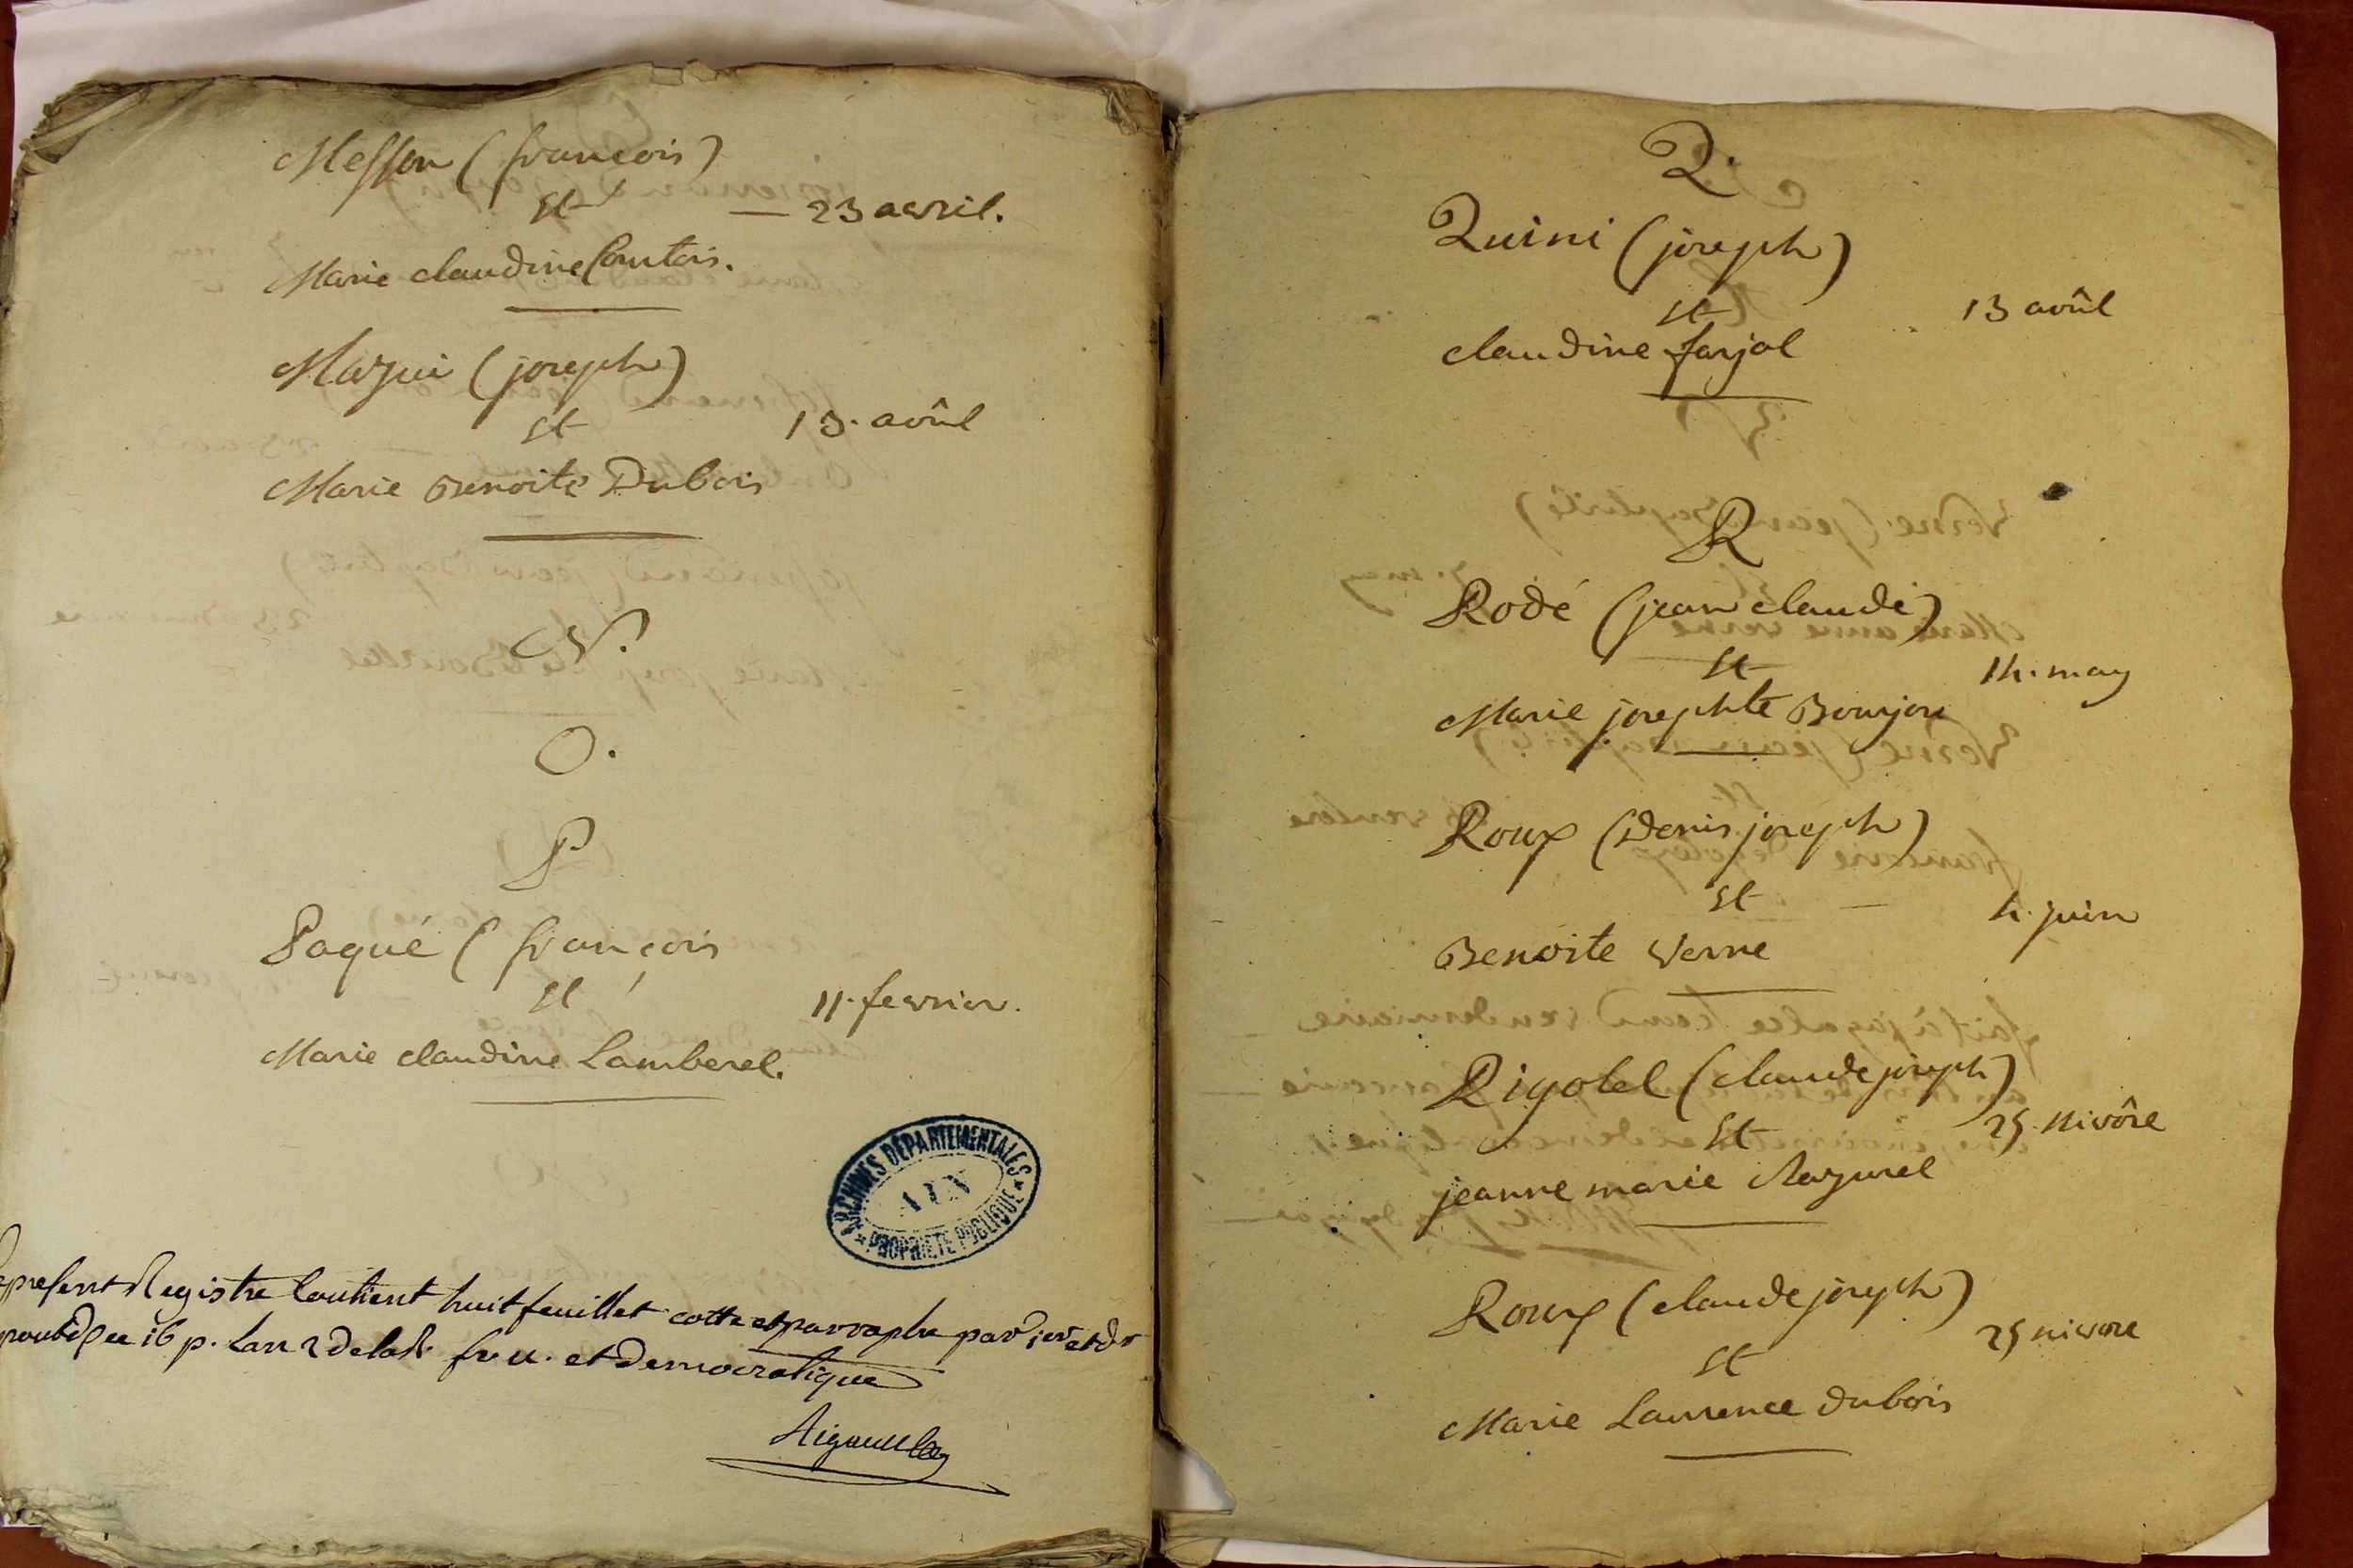 Messon (françois)
Et — 23 avril.
Marie claudine Comtois.
Mazui (joseph)
Et 13. aoûst
Marie Benoite Dubois
N.
O.
P
Paqué (françois
Et 11. fevrier.
Marie claudine Lamberet.
ARCHIVES DÉPARTEMENTALES
AIN
PROPRIÉTÉ PUBLIQUE
present Registre Contient huit feuillet cotte et parraphe par
16 p. Lan 2 de la R. fr. u. et democratique
Q.
Quini (joseph)
Et 13 aoûst
claudine farjot
R
Rodé (jean claude)
Et 14. may
Marie josephte Bonjon
Roux (Denis joseph)
Et 4. juin
Benoite Verne
Rigotet (claude joseph)
Et 25 Nivôse
jeanne marie Razurel
Roux (claude joseph)
Et 25 nivose
Marie Laurence dubois